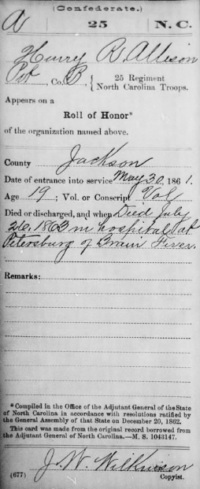 (Confederate.)
A 25 N. C.
Henry R. Allison
Pvt, Co. B, 25 Regiment
North Carolina Troops.
Appears on a
Roll of Honor*
of the organization named above.
County Jackson
Date of entrance into service May 30, 1861.
Age 19; Vol. or Conscript Vol
Died or discharged, and when Died July
26, 1863 in hospital at
Petersburg of Fever.
Remarks:
* Compiled in the Office of the Adjutant General of the State
of North Carolina in accordance with resolutions ratified by
the General Assembly of that State on December 20, 1862.
This card was made from the original record borrowed from
the Adjutant General of North Carolina.—M. S. 1043147.
J. W. Wilkinson
(677) Copyist.